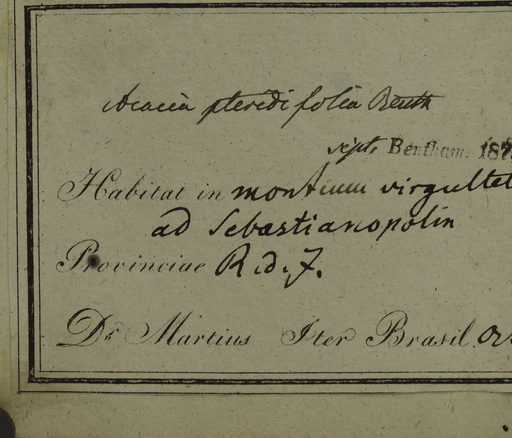 Acacia pteridifolia Benth
sept. Bentham. 187
Habitat in montium virgultet
ad Sebastianopolin
Provinciae R. d. J.
Dr. Martius Iter Brasil.